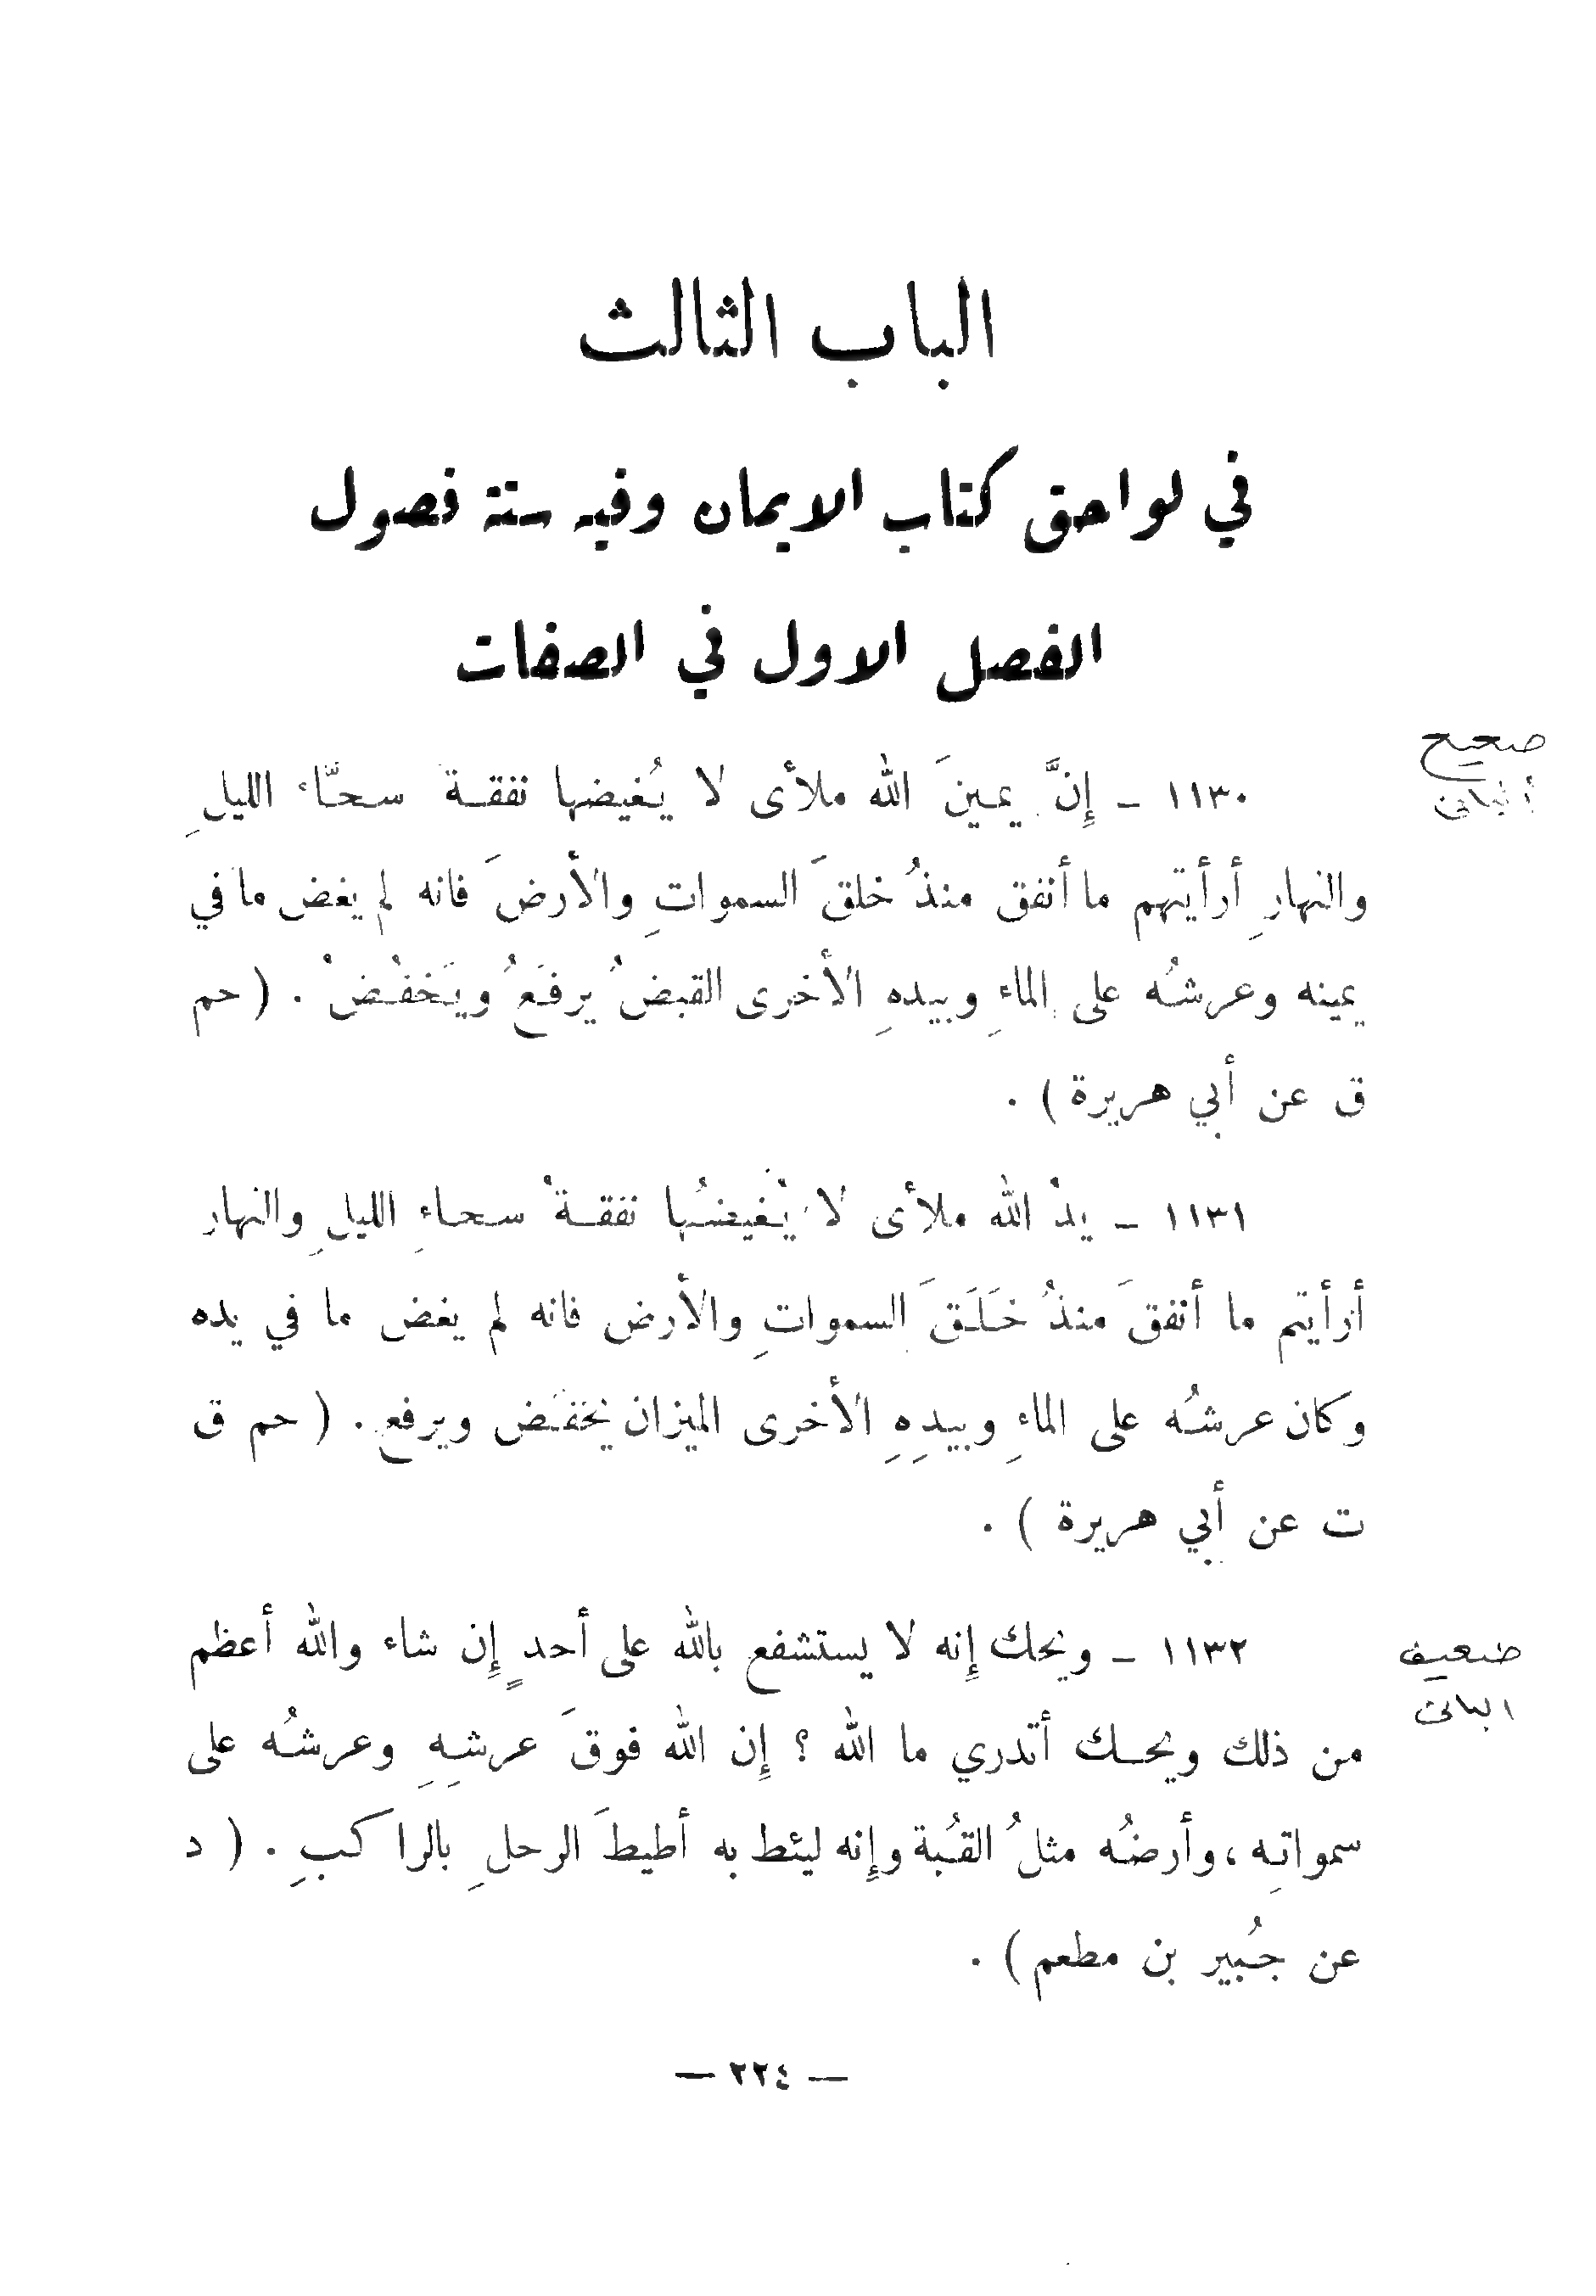 الباب الثالث
في لواحق كتاب الايمان وفيه ستة فصول
الفصل الاول في الصفات
صحيح
ألباني
١١٣٠ ـ إِنَّ يمينَ الله ملأى لا يُغيضها نفقـة سحّاء الليلِ
والنهارِ أرأيتهم ما أنفق منذُ خلقَ السمواتِ والأرضَ فانه لم يغض ما في
يمينه وعرشُه على الماءِ وبيدهِ الأخرى القبضُ يرفَعُ ويَخفُضْ . ( حم
ق عن أبي هريرة ) .
١١٣١ ـ يدْ الله ملأى لا يْغيضُها نفقـةْ سحاءِ الليلِ والنهار
أرأيتم ما أنفقَ منذُ خلَقَ السمواتِ والأرض فانه لم يغض ما في يده
وكان عرشُه على الماءِ وبيدِهِ الأخرى الميزان يخفض ويرفع . ( حم ق
ت عن أبي هريرة ) .
ضعيف
البانى
١١٣٢ ـ ويحك إِنه لا يستشفع بالله على أحدٍ إِن شاء والله أعظم
من ذلك ويحـك أتدري ما الله ؟ إِن الله فوقَ عرشِهِ وعرشُه على
سمواتِه ، وأرضُه مثلُ القُبة وإِنه ليئط به أطيطَ الرحلِ بالراكبِ . ( د
عن جُبير بن مطعم ) .
— ٢٢٤ —